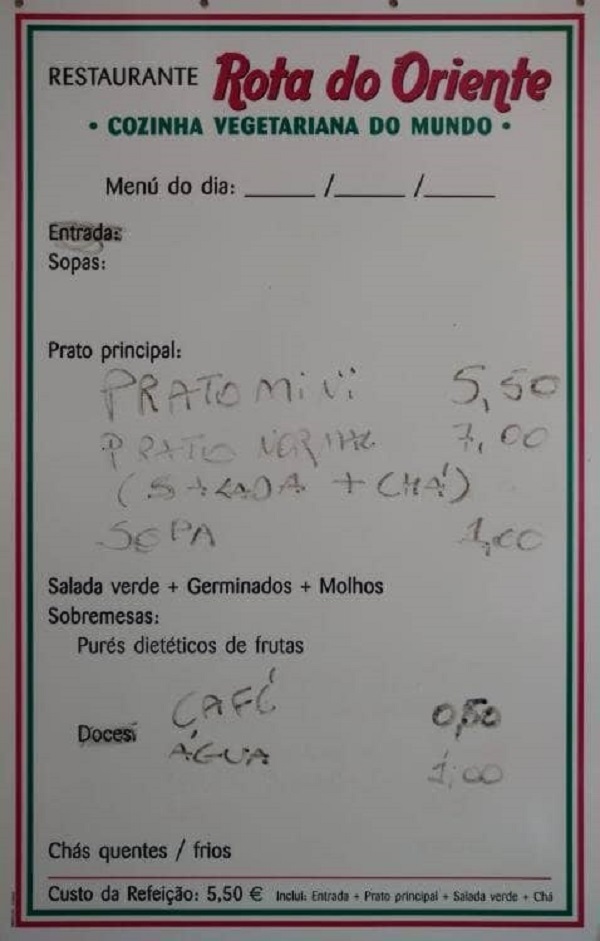 RESTAURANTE Rota do Oriente
• COZINHA VEGETARIANA DO MUNDO •
Menú do dia: _____ /_____ /_____
Entrada:
Sopas:
Prato principal:
PRATO MINI 5,50
PRATO NORMAL 7,00
(SALADA + CHÁ)
SOPA 1,00
Salada verde + Germinados + Molhos
Sobremesas:
Purés dietéticos de frutas
CAFÉ 0,50
Doces:
ÁGUA 1,00
Chás quentes / frios
Custo da Refeição: 5,50 € Inclui: Entrada + Prato principal + Salada verde + Chá